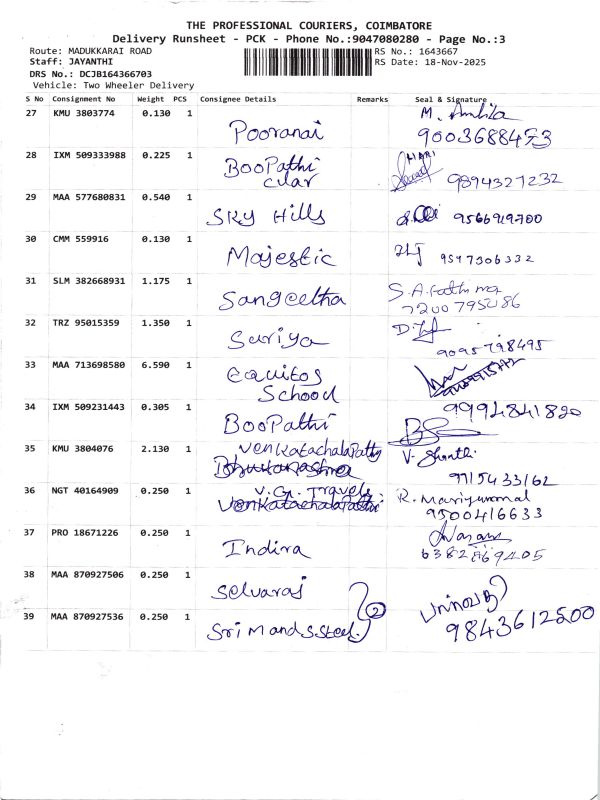 THE PROFESSIONAL COURIERS, COIMBATORE
Delivery Runsheet - PCK - Phone No.:9047080280 - Page No.:3
Route: MADUKKARAI ROAD RS No.: 1643667
Staff: JAYANTHI RS Date: 18-Nov-2025
DRS No.: DCJB164366703
Vehicle: Two Wheeler Delivery
S No Consignment No Weight PCS Consignee Details Remarks Seal & Signature
27 KMU 3803774 0.130 1 Pooranai M.
9003688473
28 IXM 509333988 0.225 1 BooPathi HARI
9894327232
29 MAA 577680831 0.540 1 SKY Hills 9566919700
30 CMM 559916 0.130 1 Majestic 9597306332
31 SLM 382668931 1.175 1 Sangeetha S.A.Fathima
7200795086
32 TRZ 95015359 1.350 1 Suriya D.
9095798495
33 MAA 713698580 6.590 1 Equitos
School
34 IXM 509231443 0.305 1 BooPathi 9994841820
35 KMU 3804076 2.130 1 VenkatachalaPathy V. Shanthi
9715433162
36 NGT 40164909 0.250 1 V.G. Travels R. Mariyammal
VenkatachalaPathi 9500416633
37 PRO 18671226 0.250 1 Indira
38 MAA 870927506 0.250 1 Selvaraj
39 MAA 870927536 0.250 1 Sri Mands Steel 2 9843612500